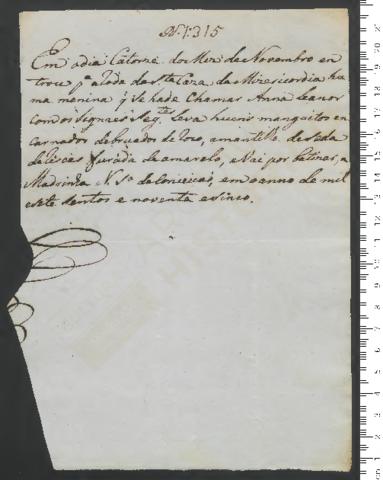 N. 1315
Em o dia Catorze do Mez de Novembro en
trou pª a Roda da Stª Caza da Mizericordia hu
ma menina q̃ se hade Chamar Anna Leanor
com os signaes Seg.tes Leva huns manguitos en
carnados de
de liscas de amarelo, e Vai por batizar, a
Madrinha N. Srª da Conceicaõ, em o anno de mil
e sete sentos e noventa e sinco.